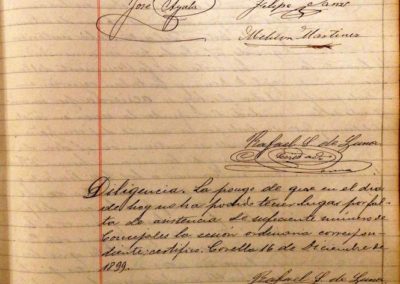 José Ayala Felipe Sanz
Melchor Martinez
Rafael S. de Luna
Diligencia. La pongo de que en el dia
de hoy no ha podido tener lugar por fal-
ta de asistencia de suficiente número de
Concejales la sesión ordinaria correspon-
diente: certifico. Corella 16 de Diciembre de
1899.
Rafael S. de Luna